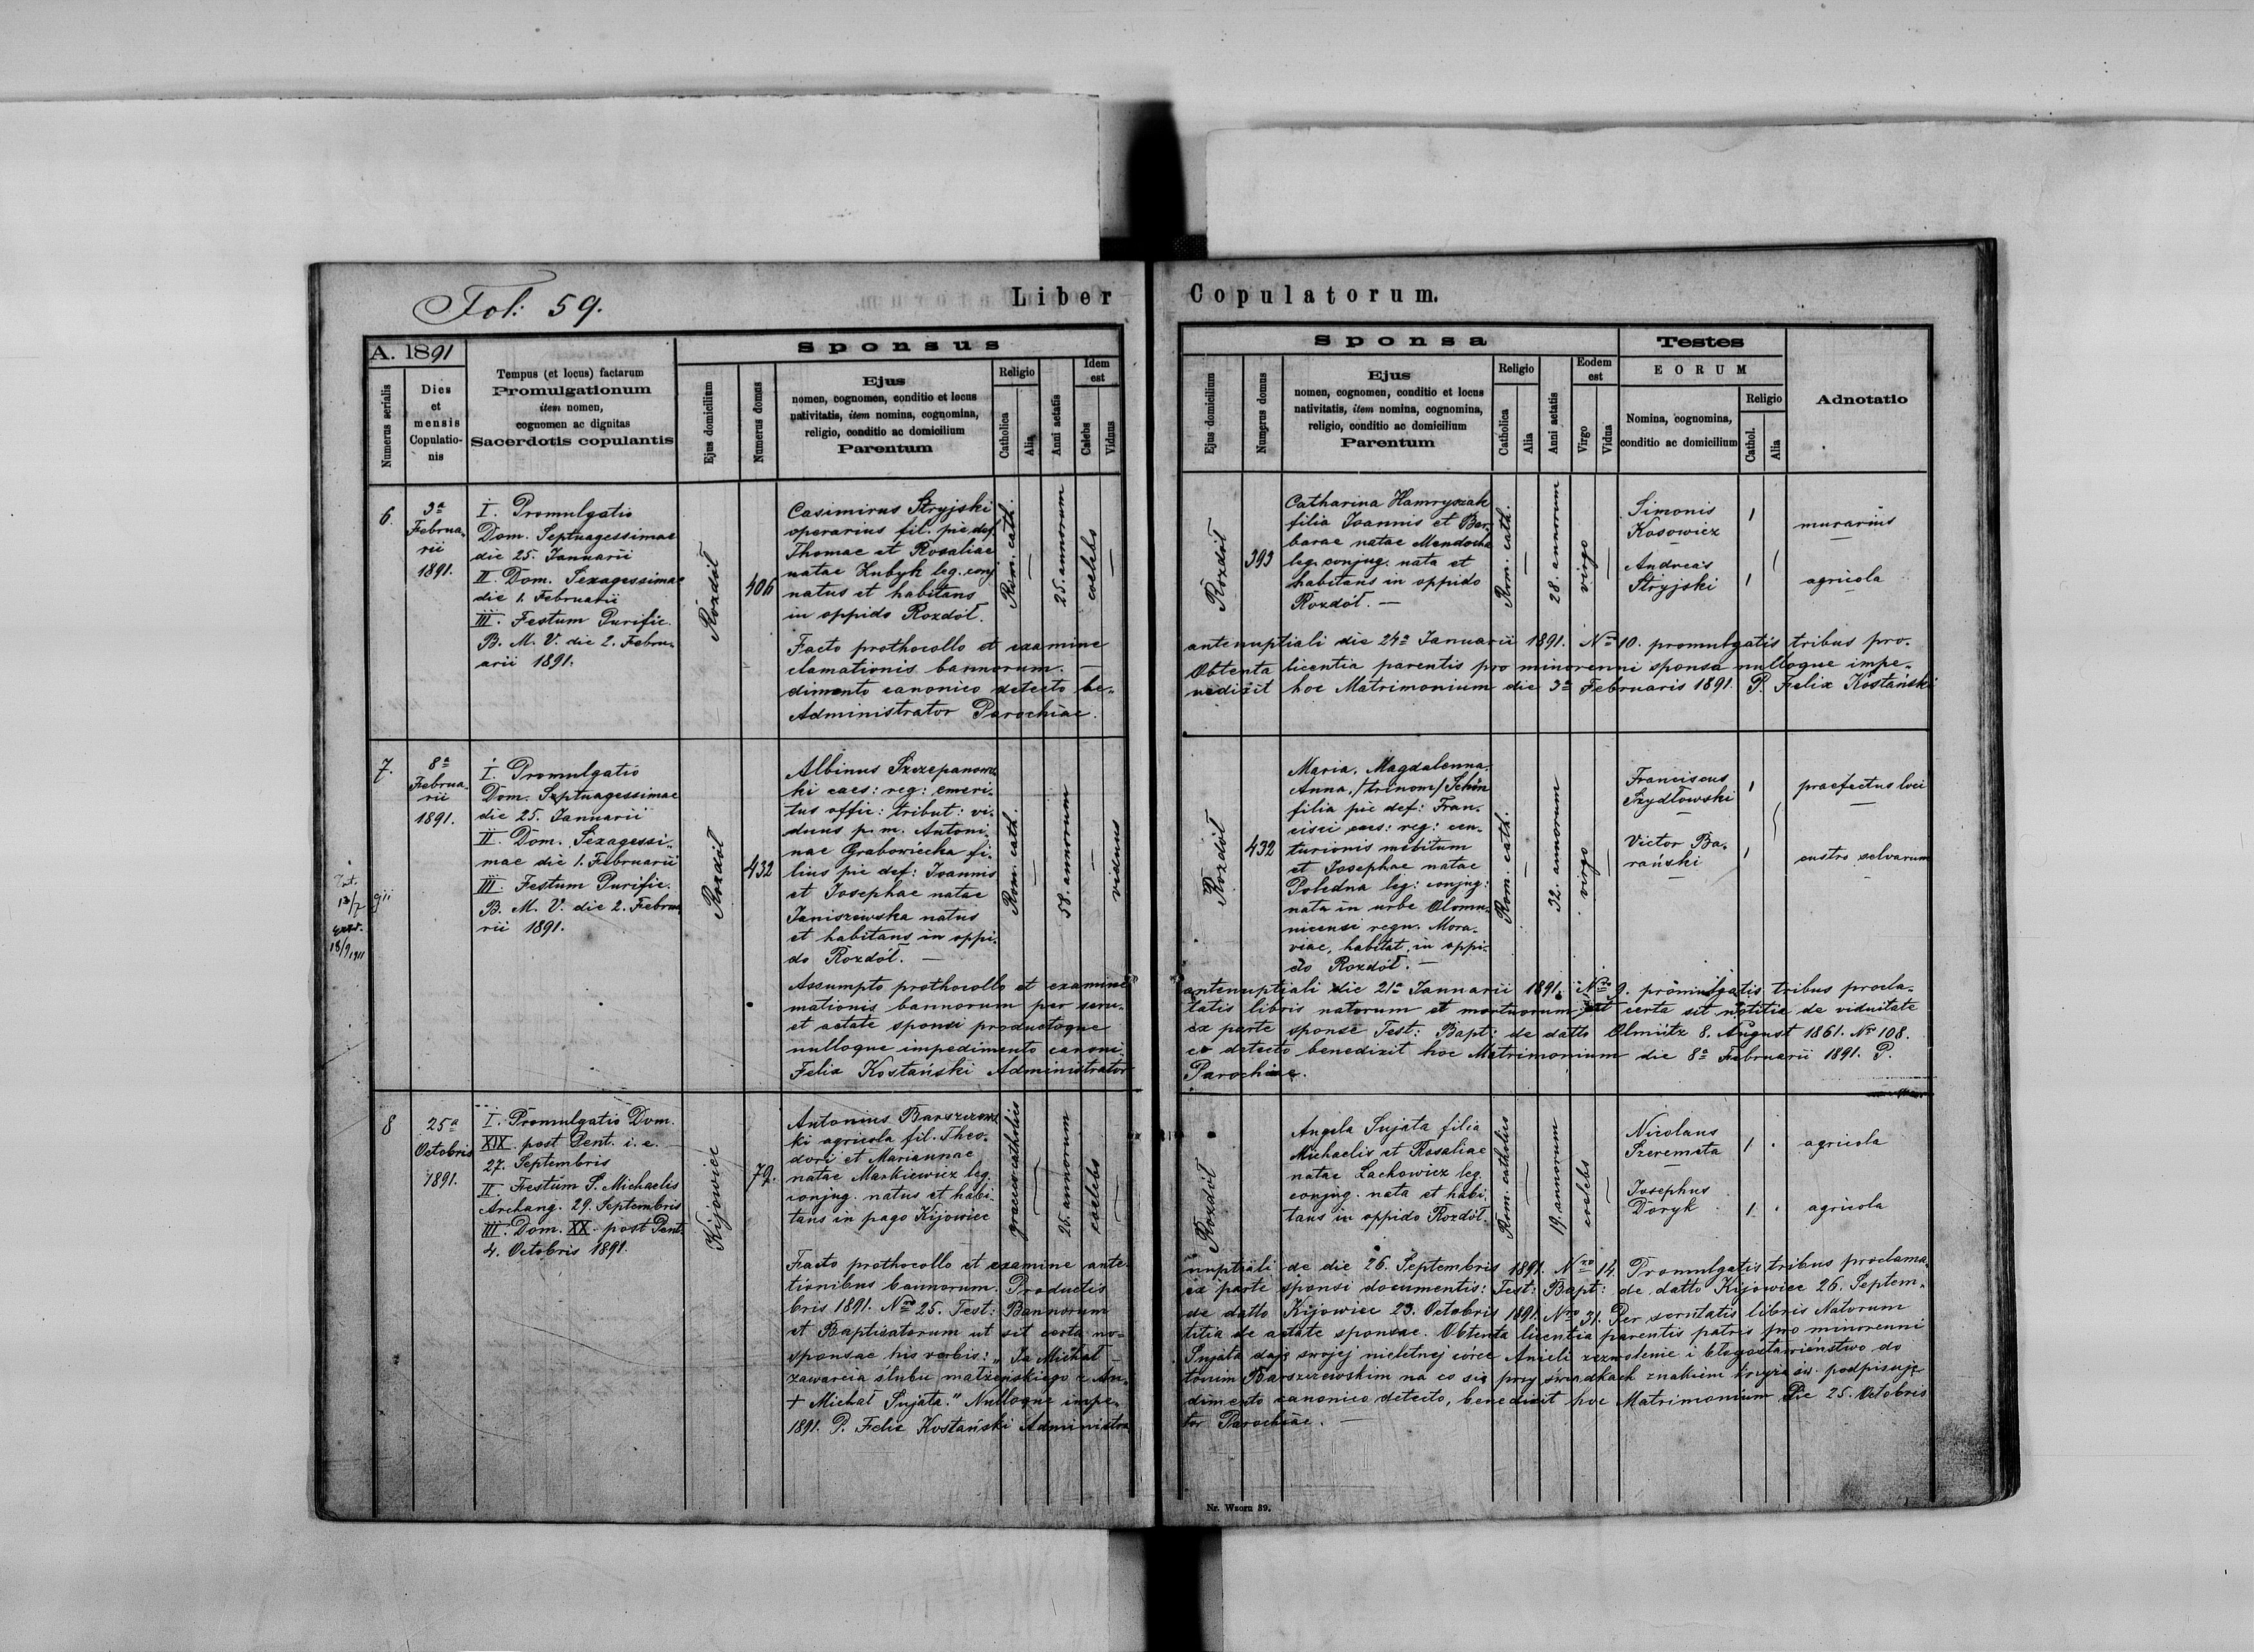 Fol: 59.
Liber Copulatorum.
A. 1891
Numerus serialis
Dies
et
mensis
Copulatio-
nis
Tempus (et locus) factarum
Promulgationum
item nomen,
cognomen ac dignitas
Sacerdotis copulantis
Sponsus
Ejus domicilium
Numerus domus
Ejus
nomen, cognomen, conditio et locus
nativitatis, item nomina, cognomina,
religio, conditio ac domicilium
Parentum
Religio
Catholica
Alia
Anni aetatis
Idem
est
Calebs
Viduus
Sponsa
Ejus domicilium
Numerus domus
Ejus
nomen, cognomen, conditio et locus
nativitatis, item nomina, cognomina,
religio, conditio ac domicilium
Parentum
Religio
Catholica
Alia
Anni aetatis
Eodem
est
Virgo
Vidua
Testes
EORUM
Nomina, cognomina,
conditio ac domicilium
Religio
Cathol.
Alia
Adnotatio
6.
3a
Februa-
rii
1891.
I. Promulgatio
Dom. Septuagessimae
die 25. Januarii
II. Dom. Sexagessimae
die 1. Februarii
III. Festum Purific.
B. M. V. die 2. Febru-
arii 1891.
Rozdół
406
Casimirus Stryjski
operarius fil. pie def.
Thomae et Rosaliae
natae Zubyk leg. conj
natus et habitans
in oppido Rozdół.
Rom. cath.
25. annorum
coelebs
Rozdół
393
Catharina Hamryszak
filia Joannis et Bar-
barae natae Mendocha
leg. conjug. nata et
habitans in oppido
Rozdół. —
Rom. cath.
28. annorum
virgo
Simonis
Kosowicz
1
murarius
Andreas
Stryjski
1
agricola
Facto prothocollo et examine antenuptiali die 24a Januarii 1891. Nro 10. promulgatis tribus pro-
clamationis bannorum. — Obtenta licentia parentis pro minorenni sponsa nulloque impe-
dimento canonico detecto be- nedixit hoc Matrimonium die 3a Februaris 1891. P. Felix Kostański
Administrator Parochiae.
7.
8a
Februa-
rii
1891.
I. Promulgatio
Dom. Septuagessimae
die 25. Januarii
II. Dom. Sexagessi-
mae die 1. Februarii
III. Festum Purific.
B. M. V. die 2. Februa
rii 1891.
13/7
gii
18/9 1911
Rozdół
432
Albinus Szczepanows
ki caes: reg: emeri-
tus offic: tribut: vi-
duus p. m. Antoni-
nae Grabowiecka fi-
lius pie def: Joannis
et Josephae natae
Janiszewska natus
et habitans in oppi-
do Rozdół. —
Rom. cath.
58. annorum
viduus
Rozdół
432
Maria, Magdalenna,
Anna, /trinom/ Schön
filia pie def: Fran-
cisci caes: reg: cen-
turionis militum
et Josephae natae
Poledna leg: conjug:
nata in urbe Olomu-
nicensi regn. Mora-
viae, habitat in oppi-
do Rozdół. —
Rom. cath.
32. annorum
virgo
Franciscus
Szydłowski
1
praefectus loci
Victor Ba-
rański
1
custro selvarum
Assumpto prothocollo et examine antenuptiali die 21a Januarii 1891. Nro 9. promulgatis tribus procla-
mationis bannorum per scru- tatis libris natorum et mortuorum ut certa sit notitia de viduitate
et aetate sponsi productoque ex parte sponse Test: Bapt: de datto Olmütz 8. August 1861. Nr 108.
nulloque impedimento canoni- co detecto benedixit hoc Matrimonium die 8a Februarii 1891. P.
Felix Kostański Administrator Parochiae.
8
25a
Octobris
1891.
I. Promulgatio Dom.
XIX. post Pent. i. e.
27. Septembris
II Festum S. Michaelis
Archang. 29. Septembris
III. Dom. XX. post Pent.
4. Octobris 1891.
Kijowiec
79.
Antonius Barszczews
ki agricola fil. Theo-
dori et Mariannae
natae Markiewicz leg.
conjug. natus et habi-
tans in pago Kijowiec
graeco catholicus
26. annorum
coelebs
Rozdół
Angela Sujata filia
Michaelis et Rosaliae
natae Lachowicz leg.
conjug. nata et habi-
tans in oppido Rozdół.
Rom. catholicus
19. annorum
coelebs
Nicolaus
Szeremeta
1
agricola
Josephus
Doryk
1.
agricola
Facto prothocollo et examine ante- nuptiali de die 26. Septembris 1891. Nro 14. Promulgatis tribus proclama
tionibus bannorum. Productis ex parte sponsi documentis: Test: Bapt: de datto Kijowiec 26. Septem-
bris 1891. Nro 25. Test: Bannorum de datto Kijowiec 23. Octobris 1891. Nro 31. Per scrutatis libris Natorum
et Baptisatorum ut sit certa no- titia de aetate sponsae. Obtenta licentia parentis patris pro minorenni
sponsae his verbis: „Ja Michał Sujata daję swojej nieletnej córce Anieli zezwolenie i błogosławieństwo do
zawarcia ślubu małżeńskiego z An- tonim Barszczewskim na co się przy świadkach znakiem krzyża św. podpisuję
+ Michał Sujata." Nulloque impe- dimento canonico detecto, benedixit hoc Matrimonium Die 25. Octobris
1891. P. Felix Kostański Administra tor Parochiae. —
Nr. Wzoru 39.